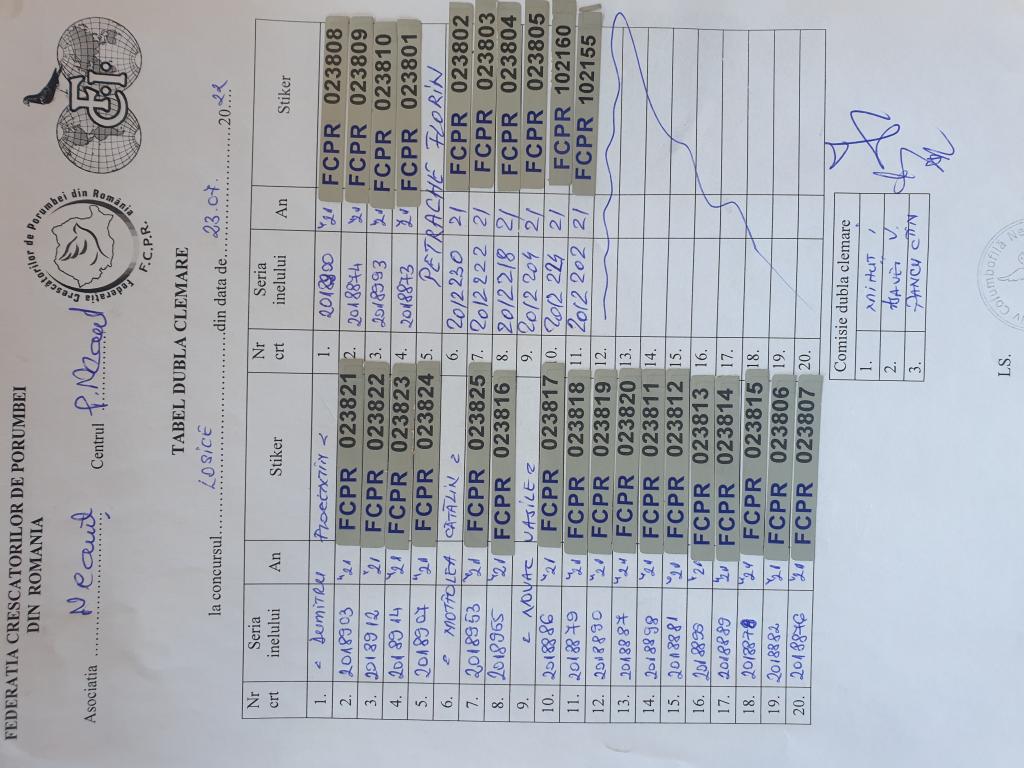 FEDERATIA CRESCATORILOR DE PORUMBEI
DIN ROMANIA
Federatia Crescătorilor de Porumbei din România
F.C.P.R.
FCI
Asociatia Neamț Centrul P. Neamț
TABEL DUBLA CLEMARE
la concursul LOSICE din data de 23.07. 2022
Nr crt Seria inelului An Stiker Nr crt Seria inelului An Stiker
1. " DUMITRU 1. 2018800 '21 FCPR 023808
2. 2018903 '21 FCPR 023821 2. 2018874 '21 FCPR 023809
3. 2018912 '21 FCPR 023822 3. 2018993 '21 FCPR 023810
4. 2018914 '21 FCPR 023823 4. 2018873 '21 FCPR 023801
5. 2018907 '21 FCPR 023824 5. PETRACHE FLORIN
6. " MOTĂOLEA CĂTĂLIN " 6. 2012230 21 FCPR 023802
7. 2018953 '21 FCPR 023825 7. 2012222 21 FCPR 023803
8. 2018965 '21 FCPR 023816 8. 2012218 21 FCPR 023804
9. " NOVAC VASILE " 9. 2012204 21 FCPR 023805
10. 2018886 '21 FCPR 023817 10. 2012224 21 FCPR 102160
11. 2018879 '21 FCPR 023818 11. 2012202 21 FCPR 102155
12. 2018890 '21 FCPR 023819 12.
13. 2018887 '21 FCPR 023820 13.
14. 2018898 '21 FCPR 023811 14.
15. 2018881 '21 FCPR 023812 15.
16. 2018899 '21 FCPR 023813 16.
17. 2018889 '21 FCPR 023814 17.
18. 2018878 '21 FCPR 023815 18.
19. 2018882 '21 FCPR 023806 19.
20. 2018876 '21 FCPR 023807 20.
Comisie dubla clemare
1. MIHUȚ I
2. V.
3. PANCU CTIN
LS.